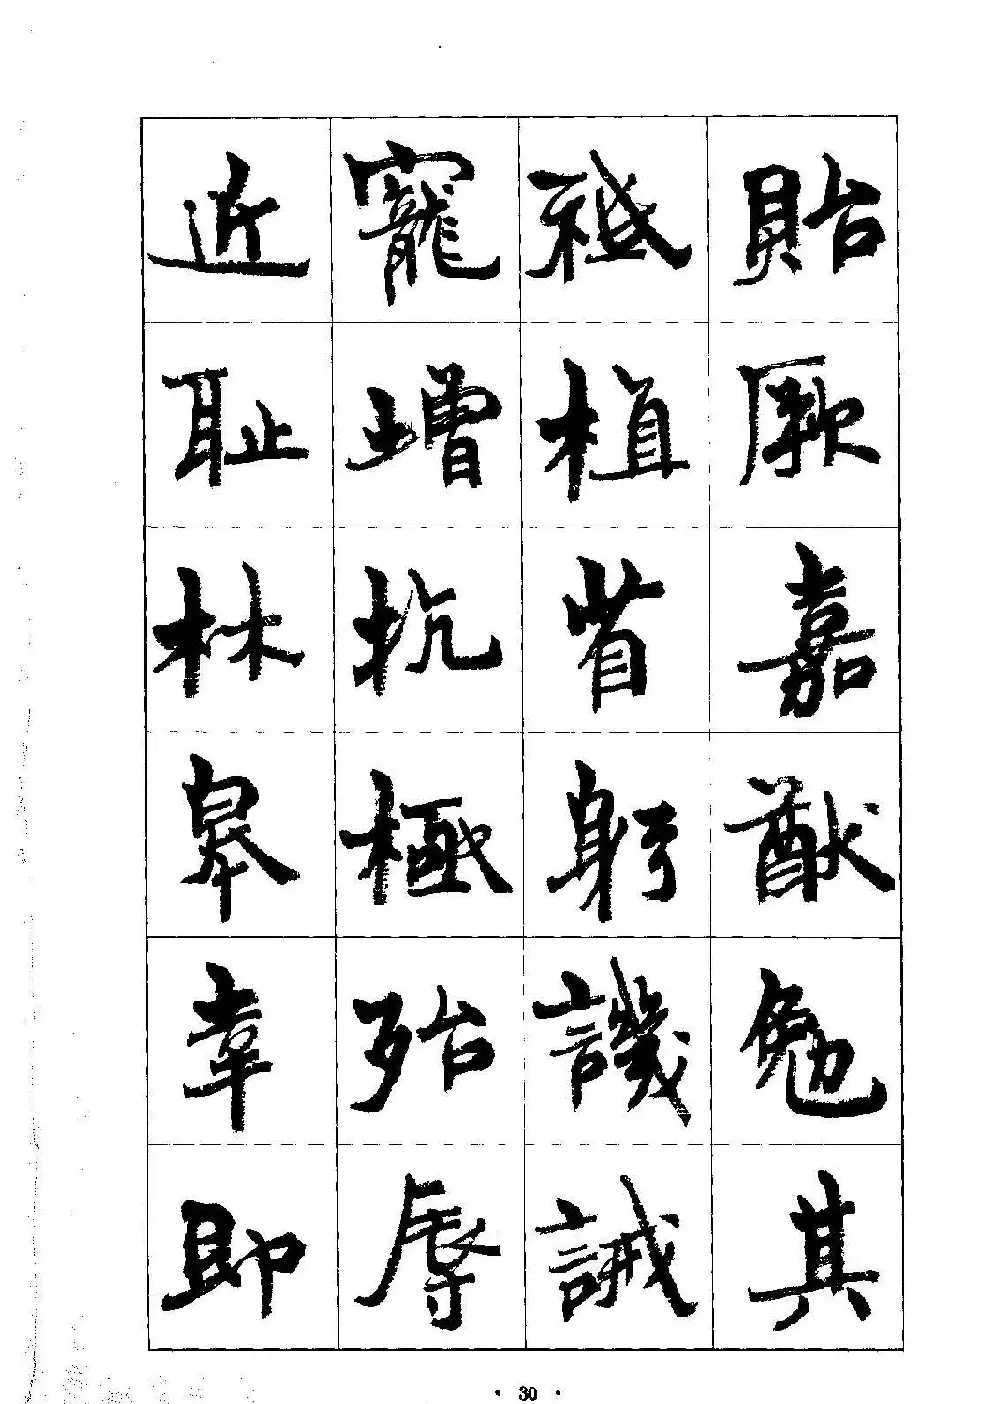 貽厥嘉猷勉其
祗植省躬譏誡
寵增抗極殆辱
近恥林皋幸即
· 30 ·